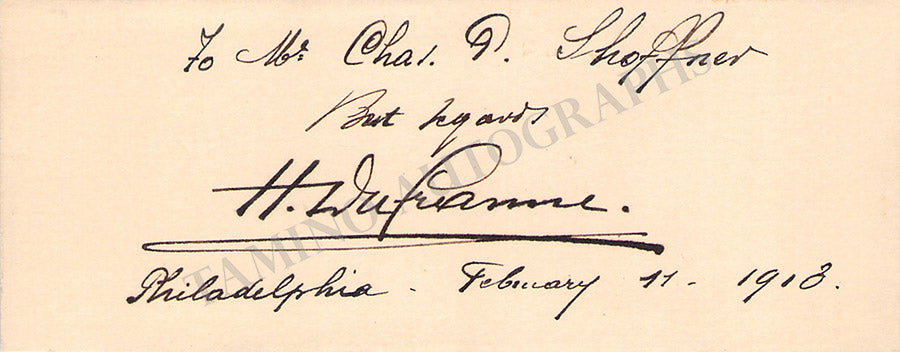 To Mr. Chas. D. Shoffner
Best regards
H. Dufranne.
Philadelphia - February 11 - 1913.
TAMINO AUTOGRAPHS